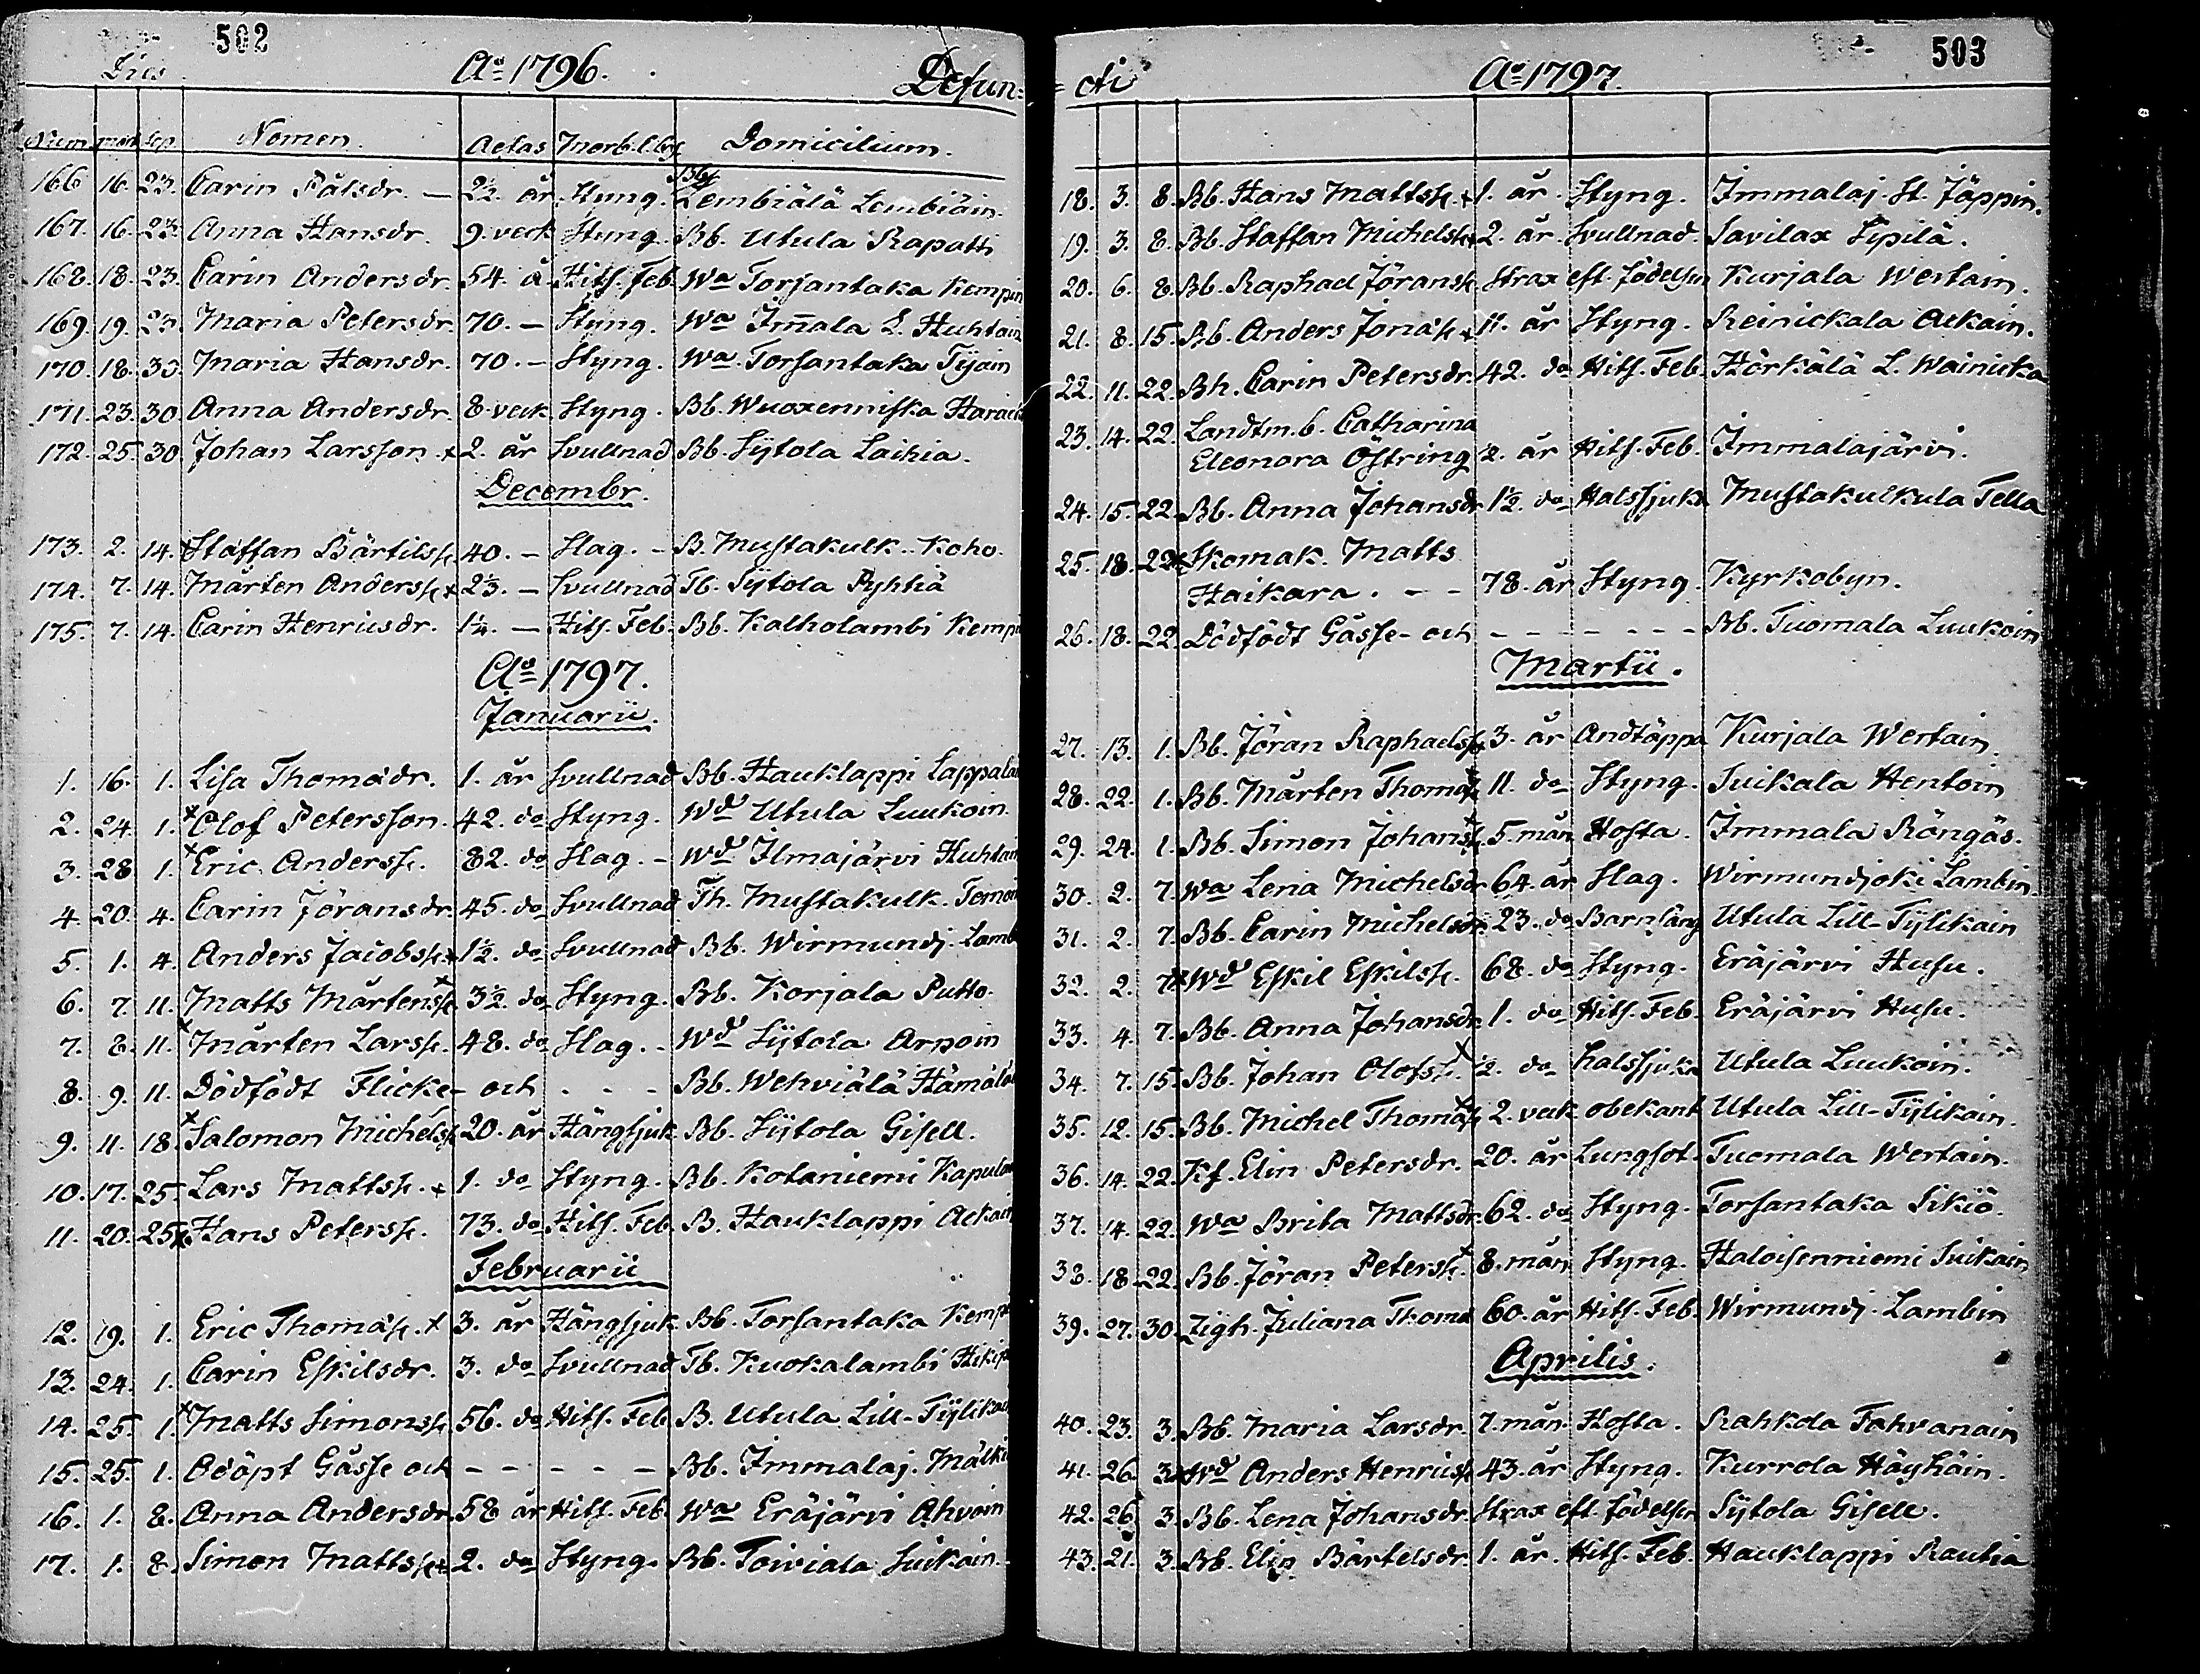 502
Dies Ao 1796. Defun=
Num. mort. sep. Nomen. Aetas Morb. l. Domicilium.
166 16. 23. Carin Pålsdr. — 2½. år Styng. Bb. Lembiälä Lembiäin.
167. 16. 23. Anna Hansdr. 9. veck Styng. Bb. Utula Rapatti
168. 18. 23. Carin Andersdr. 54. å Hits. Feb. Wa Torsantaka Kempin
169. 19. 23. Maria Petersdr. 70. — Styng. Wa Im̄ala L. Huhtain
170. 18. 30. Maria Hansdr. 70. — Styng. Wa Torsantaka Tijain
171. 23. 30. Anna Andersdr. 8. veck Styng. Bb. Wuoxenniska
172. 25. 30 Johan Larsson. x 2. år Svullnad Bb. Sÿtola Laihia.
Decembr.
173. 2. 14. x Staffan Bärtilss. 40. — Slag. — B. Mustakulk. Koho.
174. 7. 14. Mårten Anderss. x 2⅓. — Svullnad Tb. Sÿtola Pyhtiä
175. 7. 14. Carin Henricsdr. 1¼. — Hits. Feb. Bb. Kalholambi Kemp
Ao 1797.
Januarii.
1. 16. 1. Lisa Thomædr. 1. år Svullnad Bb. Hauklappi Lappala
2. 24. 1. x Olof Petersson. 42. do Styng. Wd Utula Luukoin.
3. 28 1. x Eric Anderss. 82. do Slag. — Wd Ilmajärvi Huhtain
4. 20. 4. Carin Jöransdr. 45. do Svullnad Th. Mustakulk. Temon
5. 1. 4. Anders Jacobss. x 1½. do Svullnad Bb. Wirmundj. Lamb
6. 7. 11. Matts Mårtenss. x 3½. do Styng. Bb. Korjala Putto.
7. 8. 11. x Mårten Larss. 48. do Slag. — Wd Sÿtola Arpoin
8. 9. 11. Dödfödt Flicke- och - - - Bb. Wehviälä Hämälä
9. 11. 18. x Salomon Michelss. 20. år Hängsjuk Bb. Sÿtola Gisell.
10. 17. 25. Lars Mattss. x 1. do Styng. Bb. Kotaniemi Kapula
11. 20. 25 x Hans Peterss. 73. do Hits. Feb B. Hauklappi Ackain
Februarii
12. 19. 1. Eric Thomæs. x 3. år Hängsjuk Bb. Torsantaka Kemp
13. 24. 1. Carin Eskilsdr. 3. do Svullnad Tb. Kuokalambi
14. 25. 1. x Matts Simonss. 56. do Hits. Feb B. Utula Lill-Tÿlikai
15. 25. 1. Odöpt Gåsse och — — — — — Bb. Immalaj. Mälki
16. 1. 8. Anna Andersdr. 58 år Hits. Feb. Wa Eräjärvi Ahvoin
17. 1. 8. Simon Mattss. x 2. do Styng. Bb. Toiviala Suikain.
503
cti Ao 1797.
18. 3. 8. Bb. Hans Mattss. x 1. år. Styng. Immalaj. St. Jäppin.
19. 3. 8. Bb. Staffan Michelss. x 2. år. Svullnad. Savilax Sipilä.
20. 6. 8. Bb. Raphael Jöranss. Strax eft. födelsen Kurjala Wertain.
21. 8. 15. Bb. Anders Jonæs. x år Styng. Reinickala Ackain.
22. 11. 22. Bh. Carin Petersdr. 42. do Hits. Feb. Härkälä L. Wainicka
23. 14. 22. Landtm. b. Catharina
Eleonora Östring ½. år Hits. Feb. Immalajärvi.
24. 15. 22. Bb. Anna Johansdr. 1½. do Halssjuka Mustakulkula Tella
25. 18. 22 x Skomak. Matts
Haikara. - - 78. år Styng. Kyrkobyn.
26. 18. 22. Dödfödt Gåsse- och - - - - - - - Bb. Tuomala Luukoin
Martii.
27. 13. 1. Bb. Jöran Raphaelss. x 3. år Andtäppa Kurjala Wertain.
28. 22. 1. Bb. Mårten Thomæs. x 11. do Styng. Suikala Hentoin
29. 24. 1. Bb. Simon Johanss. x 5. mån Hosta. Immala Röngäs.
30. 2. 7. Wa Lena Michelsdr. 64. år Slag. Wirmundjoki Lambin.
31. 2. 7. Bb. Carin Michelsdr. 23. do Barnsäng Utula Lill-Tÿlikain
32. 2. 7 x Wd Eskil Eskilss. 68. do Styng. Eräjärvi Husu.
33. 4. 7. Bb. Anna Johansdr. 1. do Hits. Feb. Eräjärvi Husu.
34. 7. 15. Bb. Johan Olofss. x ½. do halssjuka Utula Luukoin.
35. 12. 15. Bb. Michel Thomæs. x 2. veck obekant Utula Lill-Tÿlikain.
36. 14. 22. Kf. Elin Petersdr. 20. år Lungsot. Tuomala Wertain.
37. 14. 22. Wa Brita Mattsdr. 62. do Styng. Torsantaka Sikiö.
38. 18. 22. Bb. Jöran Peterss. x 8. mån Styng. Haloisenniemi Suikain
39. 27. 30. Tigh. Juliana Thomæ 60. år Hits. Feb. Wirmundj. Lambin
Aprilis.
40. 23. 3. Bb. Maria Larsdr. 7. mån. Hosta. Rahkola Tahvanain
41. 26. 3. x Wd Anders Henricss. 43. år Styng. Kurrola Häyhäin.
42. 26. 3. Bb. Lena Johansdr. Strax eft. födelsen Sÿtola Gisell.
43. 21. 3. Bb. Elin Bärtelsdr. 1. år. Hits. Feb. Hauklappi Rautia